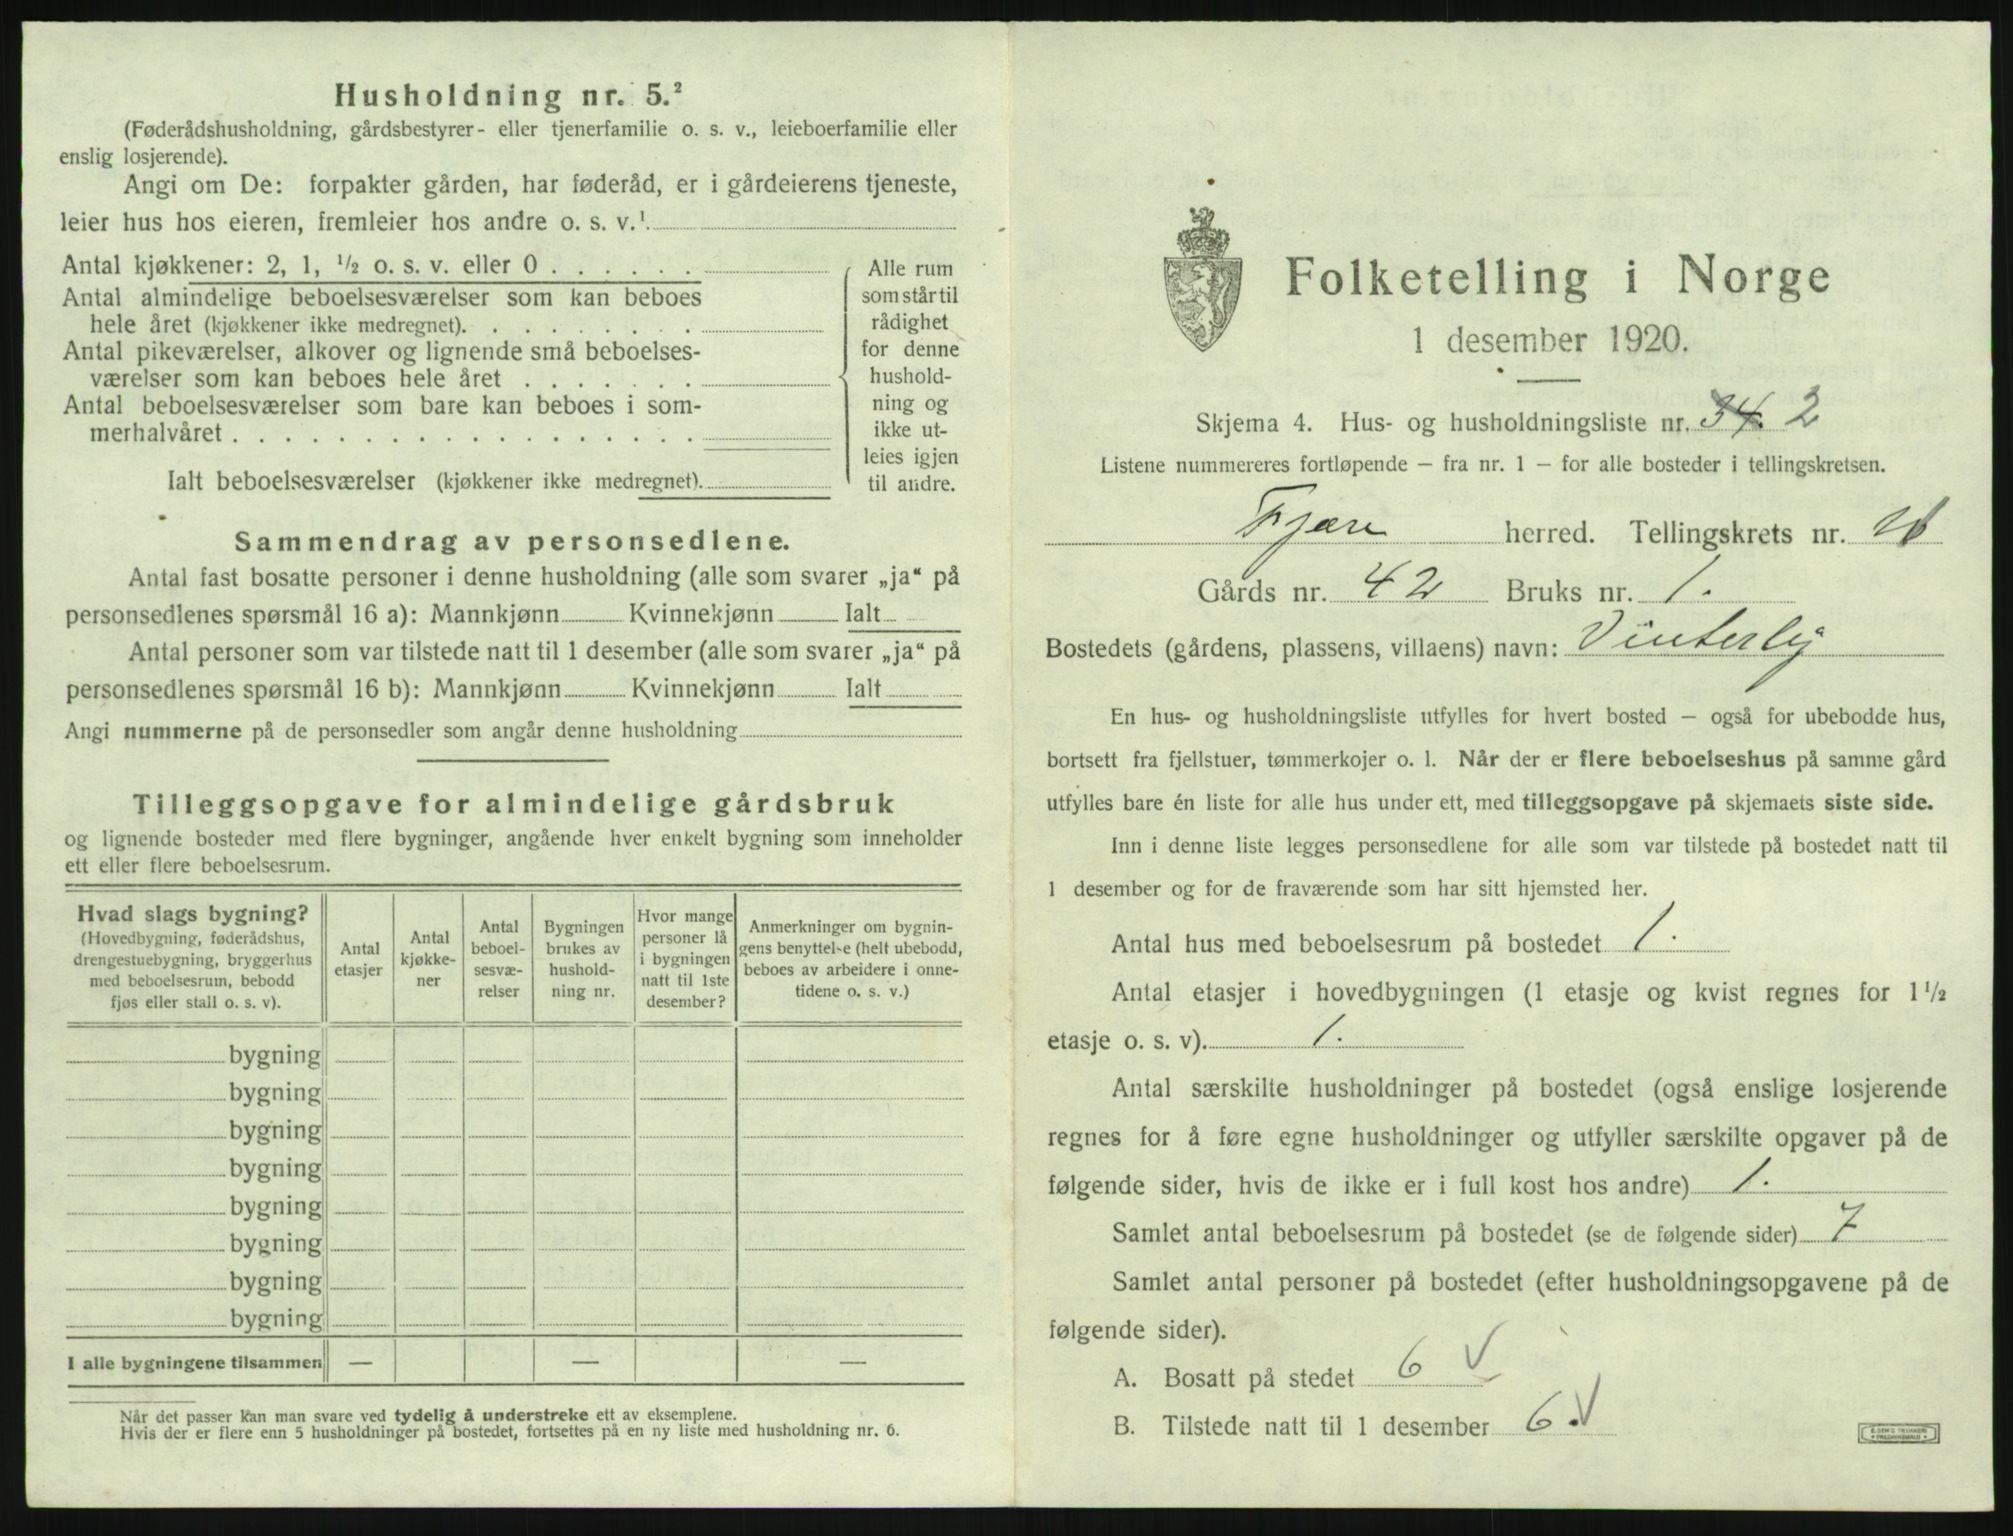 Husholdning nr. 5.²
(Føderådshusholdning, gårdsbestyrer- eller tjenerfamilie o. s. v., leieboerfamilie eller
enslig losjerende).
Angi om De: forpakter gården, har føderåd, er i gårdeierens tjeneste,
leier hus hos eieren, fremleier hos andre o. s. v.¹
Antal kjøkkener: 2, 1, ½ o. s. v. eller 0 . . . . . .
Antal almindelige beboelsesværelser som kan beboes
hele året (kjøkkener ikke medregnet). . . . . . . . .
Antal pikeværelser, alkover og lignende små beboelses-
værelser som kan beboes hele året . . . . . . .
Antal beboelsesværelser som bare kan beboes i som-
merhalvåret . . . . . . . . . . . . . . . . . .
Ialt beboelsesværelser (kjøkkener ikke medregnet).
Alle rum
som står til
rådighet
for denne
hushold-
ning og
ikke ut-
leies igjen
til andre.
Sammendrag av personsedlene.
Antal fast bosatte personer i denne husholdning (alle som svarer „ja“ på
personsedlenes spørsmål 16 a): Mannkjønn Kvinnekjønn Ialt
Antal personer som var tilstede natt til 1 desember (alle som svarer „ja“ på
personsedlenes spørsmål 16 b): Mannkjønn Kvinnekjønn Ialt
Angi nummerne på de personsedler som angår denne husholdning
Tilleggsopgave for almindelige gårdsbruk
og lignende bosteder med flere bygninger, angående hver enkelt bygning som inneholder
ett eller flere beboelsesrum.
Hvad slags bygning?
(Hovedbygning, føderådshus,
drengestuebygning, bryggerhus
med beboelsesrum, bebodd
fjøs eller stall o. s. v).
Antal
etasjer
Antal
kjøkke-
ner
Antal
beboel-
sesvæ-
relser
Bygningen
brukes av
hushold-
ning nr.
Hvor mange
personer lå
i bygningen
natt til 1ste
desember?
Anmerkninger om bygnin-
gens benyttelse (helt ubebodd,
beboes av arbeidere i onne-
tidene o. s. v.)
bygning
bygning
bygning
bygning
bygning
bygning
bygning
bygning
I alle bygningene tilsammen — — —
Når det passer kan man svare ved tydelig å understreke ett av eksemplene.
Hvis der er flere enn 5 husholdninger på bostedet, fortsettes på en ny liste med husholdning nr. 6.
Folketelling i Norge
1 desember 1920.
Skjema 4. Hus- og husholdningsliste nr. 34. 2
Listene nummereres fortløpende – fra nr. 1 – for alle bosteder i tellingskretsen.
Fjære herred. Tellingskrets nr.
Gårds nr. 42 Bruks nr. 1.
Bostedets (gårdens, plassens, villaens) navn: Vinterly
En hus- og husholdningsliste utfylles for hvert bosted – også for ubebodde hus,
bortsett fra fjellstuer, tømmerkojer o. l. Når der er flere beboelseshus på samme gård
utfylles bare én liste for alle hus under ett, med tilleggsopgave på skjemaets siste side.
Inn i denne liste legges personsedlene for alle som var tilstede på bostedet natt til
1 desember og for de fraværende som har sitt hjemsted her.
Antal hus med beboelsesrum på bostedet 1.
Antal etasjer i hovedbygningen (1 etasje og kvist regnes for 1½
etasje o. s. v). 1.
Antal særskilte husholdninger på bostedet (også enslige losjerende
regnes for å føre egne husholdninger og utfyller særskilte opgaver på de
følgende sider, hvis de ikke er i full kost hos andre) 1.
Samlet antal beboelsesrum på bostedet (se de følgende sider) 7
Samlet antal personer på bostedet (efter husholdningsopgavene på de
følgende sider).
A. Bosatt på stedet 6 V
B. Tilstede natt til 1 desember 6. V